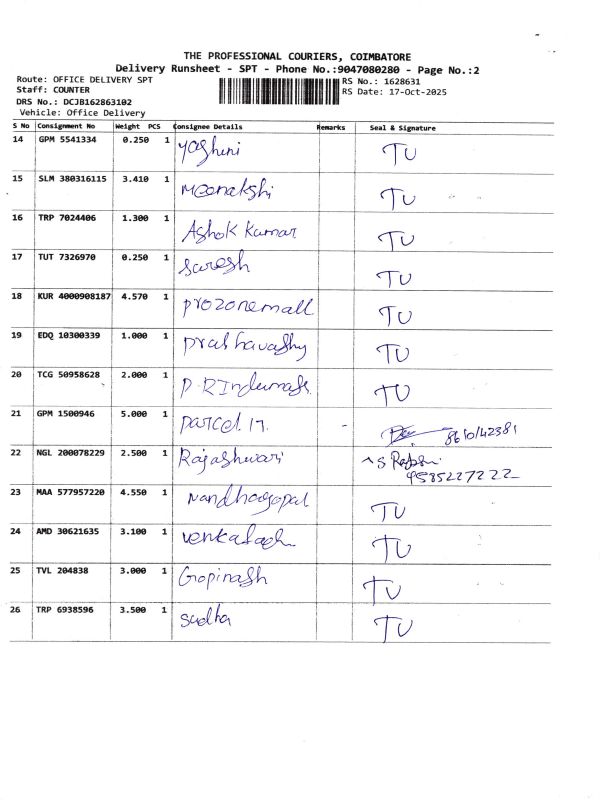 THE PROFESSIONAL COURIERS, COIMBATORE
Delivery Runsheet - SPT - Phone No.:9047080280 - Page No.:2
Route: OFFICE DELIVERY SPT RS No.: 1628631
Staff: COUNTER RS Date: 17-Oct-2025
DRS No.: DCJB162863102
Vehicle: Office Delivery
S No Consignment No Weight PCS Consignee Details Remarks Seal & Signature
14 GPM 5541334 0.250 1 Yoghini TU
15 SLM 380316115 3.410 1 Meenakshi TU
16 TRP 7024406 1.300 1 Ashok Kumar TU
17 TUT 7326970 0.250 1 Suresh TU
18 KUR 4000908187 4.570 1 prozonemall TU
19 EDQ 10300339 1.000 1 TU
20 TCG 50958628 2.000 1 TU
21 GPM 1500946 5.000 1 parcel 17.
22 NGL 200078229 2.500 1 Rajashwari
9585227222
23 MAA 577957220 4.550 1 Nandhagopal TU
24 AMD 30621635 3.100 1 TU
25 TVL 204838 3.000 1 Gopinash TU
26 TRP 6938596 3.500 1 Sudha TU